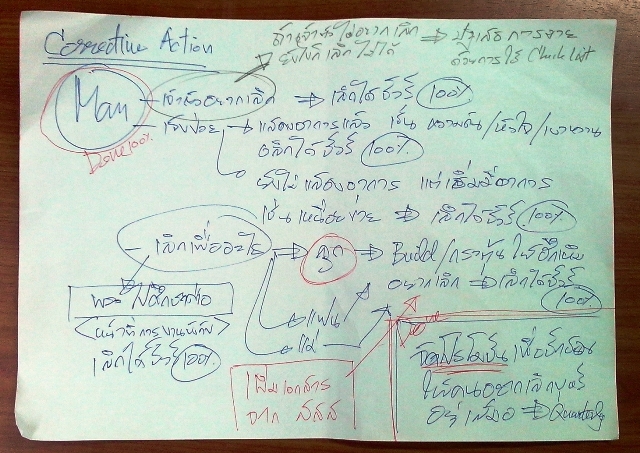 Corrective Action
ถ้าเจ้าตัวไม่อยากเลิก ⇒ ปฏิเสธการขาย
ยังไงก็เลิกไม่ได้ ด้วยการใช้ Check List
Man
Done 100%
– เจ้าตัวอยากเลิก ⇒ เลิกได้ชัวร์ 100%
– เจ็บป่วย → แสดงอาการแล้ว เช่น ความดัน/หัวใจ/เบาหวาน
เลิกได้ชัวร์ 100%
ยังไม่แสดงอาการ แต่เริ่มมีอาการ
เช่น เหนื่อยง่าย ⇒ เลิกได้ชัวร์ 100%
– เลิกเพื่ออะไร ⇒ ลูก ⇒ Build/กระตุ้น ให้ฮึกเหิม
อยากเลิก ⇒ เลิกได้ชัวร์
100%
แฟน
แม่
(หน้าที่การงานบังคับ)
เลิกได้ชัวร์ 100%
เพิ่มเอกสาร
จาก สสส
Done
จัดโปรโมชั่น เพื่อ
ให้คนอยากเลิกบุหรี่
อยู่เสมอ ⇒ Quarterly